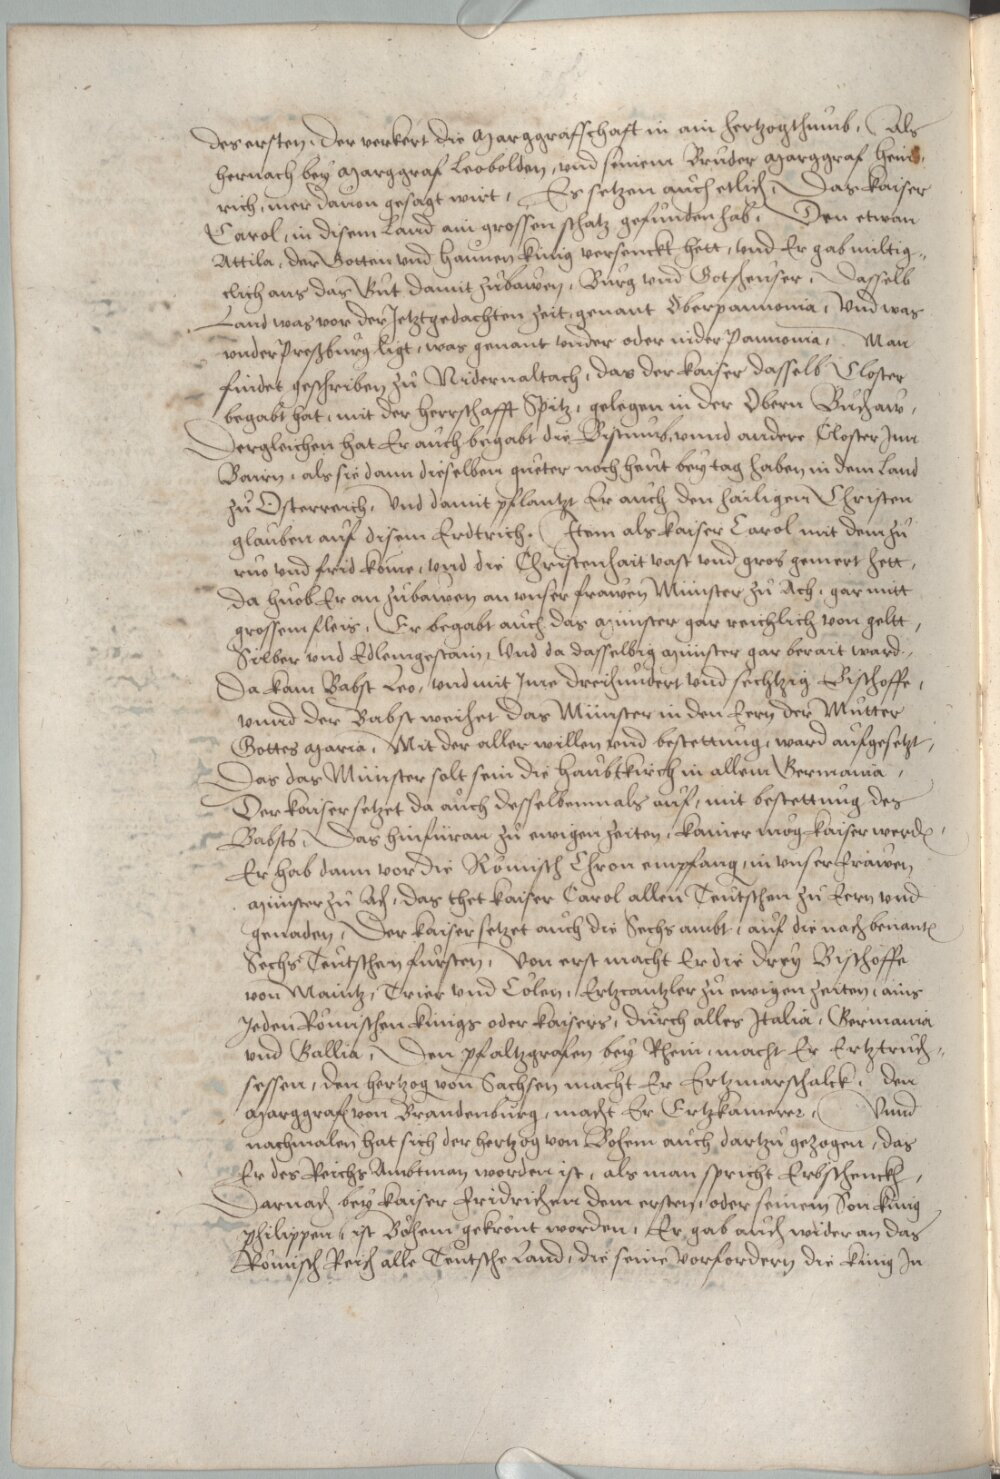 des ersten, der verkert die Marggrafschafft in ain hertzogthumb, Als
hernach bey Marggraf Leobolden, und seinem Bruder Marggraf Hein-
rich, mer davon gesagt wirt, Es setzen auch etlich, Das kaiser
Carol, in disem Land ain grossen schatz gefunden hab, Den etwan
Attila, der Gotten und Haunen künig versenckt hett, und Er gab miltig-
clich aus das Gut damit zubawen, Burg und Gotsheuser, Dasselb
Land was vor der Jetztgedachten zeit, genant Oberpannonia, Und was
under Preßburg ligt, was genant under oder nider Pannonia, Man
findet geschriben zu Nidernaltach, das der kaiser dasselb Closter
begabt hat, mit der Herrschafft Spitz, gelegen in der Obern Wachaw,
Dergleichen hat Er auch begabt die Bistumb, unnd andere Closter Jnn
Bairn, als sie dann dieselben güeter noch heut bey tag haben in dem Land
zu Osterreich, Und damit pflantzt Er auch den hailigen Christen
glauben auf disem Erdtrich. Item als kaiser Carol mit dem zu
ruo und frid kome, und die Christenhait vast und gros gemert hett,
da huob Er an zubawen an unser frawen Münster zu Ach, gar mitt
grossem fleis, Er begabt auch das Münster gar reichlich von geltt,
Silber und Edlemgestain, Und da dasselbig Münster gar berait ward,
Da kam Babst Leo, und mit Jme dreihundert und sechtzig Bischoffe,
unnd der Babst weihet das Münster in den Eern der Mutter
Gottes Maria, Mit der aller willen und bestettung, ward aufgesetzt,
Das das Münster solt sein die haubtkirch in allem Germania,
Der kaiser setzet da auch desselbenmals auf, mit bestettung des
Babsts, Das hinfüran zu ewigen zeiten, kainer mög kaiser werden,
Er hab dann vor die Römisch Chron empfang, in unser frawen
Münster zu Ach, das thet kaiser Carol allen Teutschen zu Eern und
genaden, Der kaiser setzet auch die Sechs ambt, auf die nachbenanten
Sechs Teutschen fürsten, Von erst macht Er die drey Bischoffe
von Maintz, Trier und Cölen, Ertzcantzler zu ewigen zeiten, ains
Jeden Römischen künigs oder kaisers, durch alles Italia, Germania
und Gallia, Den pfaltzgrafen bey Rhein, macht Er Ertztruch-
sessen, den hertzog von Sachsen macht Er Ertzmarschalck, den
Marggraf von Brandenburg, macht Er Ertzkamerer, Unnd
nachmalen hat sich der hertzog von Böhem auch dartzu gezogen, das
Er des Reichs Ambtman worden ist, als man spricht Erbschenckh,
Darnach bey kaiser Fridrichen dem ersten, oder seinem Son künig
philippen, ist Böhem gekrönt worden, Er gab auch wider an das
Römisch Reich alle Teutsche Land, die seine vorfordern die künig Jn